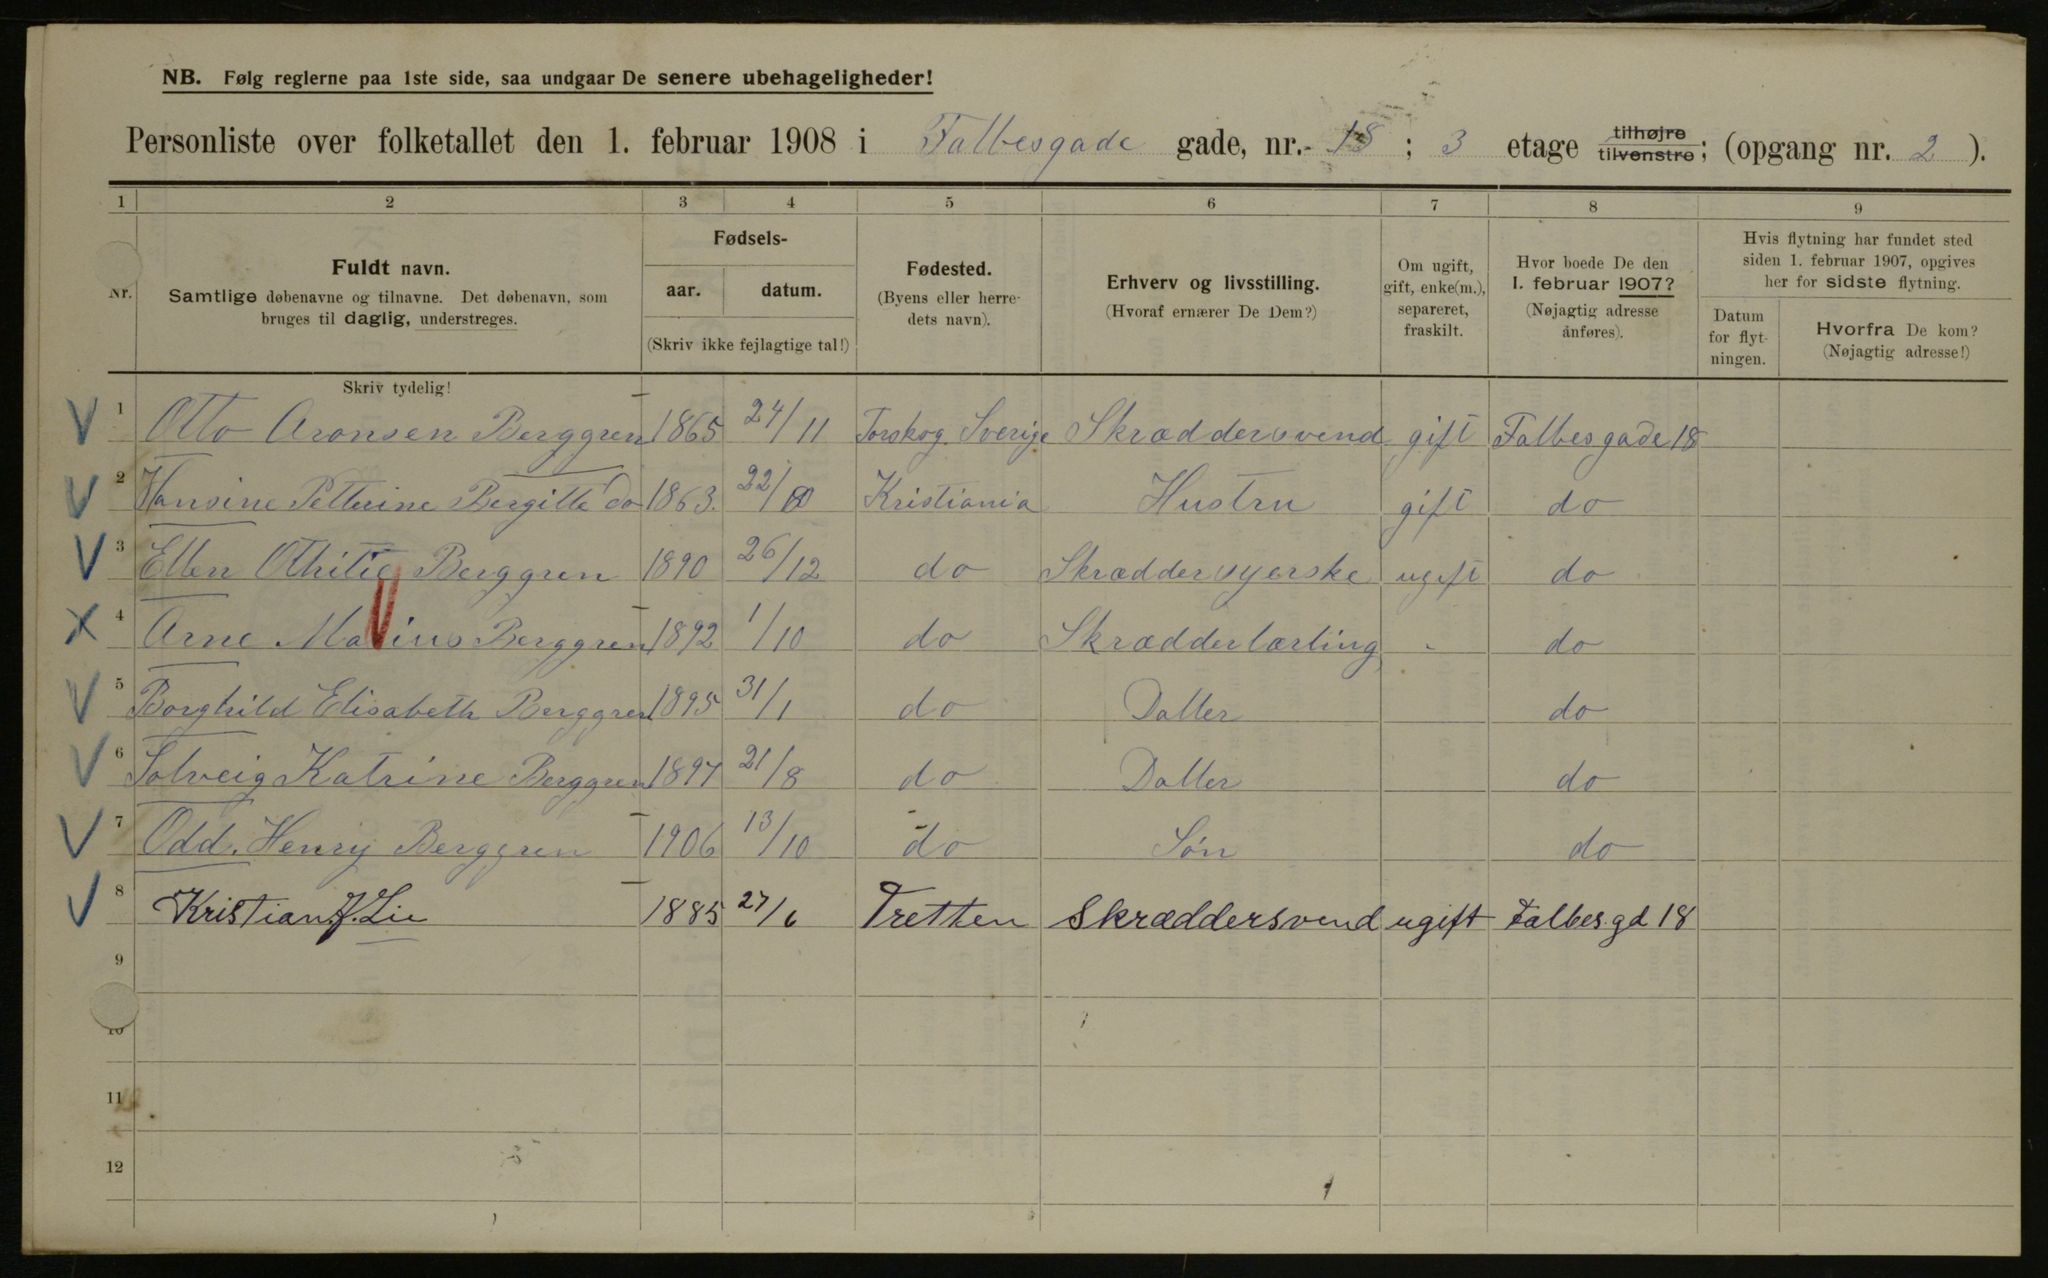 NB. Følg reglerne paa 1ste side, saa undgaar De senere ubehageligheder!
Personliste over folketallet den 1. februar 1908 i Falbesgade gade, nr. 18 ; 3 etage tilhøjre tilvenstre ; (opgang nr. 2 ).
1 2 3 4 5 6 7 8 9
Nr.
Fuldt navn.
Samtlige døbenavne og tilnavne. Det døbenavn, som
bruges til daglig, understreges.
Skriv tydelig!
Fødsels-
aar. datum.
(Skriv ikke fejlagtige tal!)
Fødested.
(Byens eller herre-
dets navn).
Erhverv og livsstilling.
(Hvoraf ernærer De Dem?)
Om ugift,
gift, enke(m.),
separeret,
fraskilt.
Hvor boede De den
1. februar 1907?
(Nøjagtig adresse
anføres).
Hvis flytning har fundet sted
siden 1. februar 1907, opgives
her for sidste flytning.
Datum
for flyt-
ningen.
Hvorfra De kom?
(Nøjagtig adresse!)
1 Otto Aronsen Berggren 1865 24/11 Torskog Sverige Skræddersvend gift Falbesgade 18
2 Hansine Petterine Bergitte do 1863. 22/ Kristiania Hustru gift do
3 Ellen Othilie Berggren 1890 26/12 do Skræddersyerske ugift do
4 Arne Marius Berggren 1892 1/10 do Skrædderlærling - do
5 Borghild Elisabeth Berggren 1895 31/1 do Datter do
6 Solveig Katrine Berggren 1897 21/8 do Datter do
7 Odd. Henry Berggren 1906 13/10 do Søn do
8 Kristian J. Lie 1885 27/6 Tretten Skræddersvend ugift Falbes.gd 18
9
10
11
12